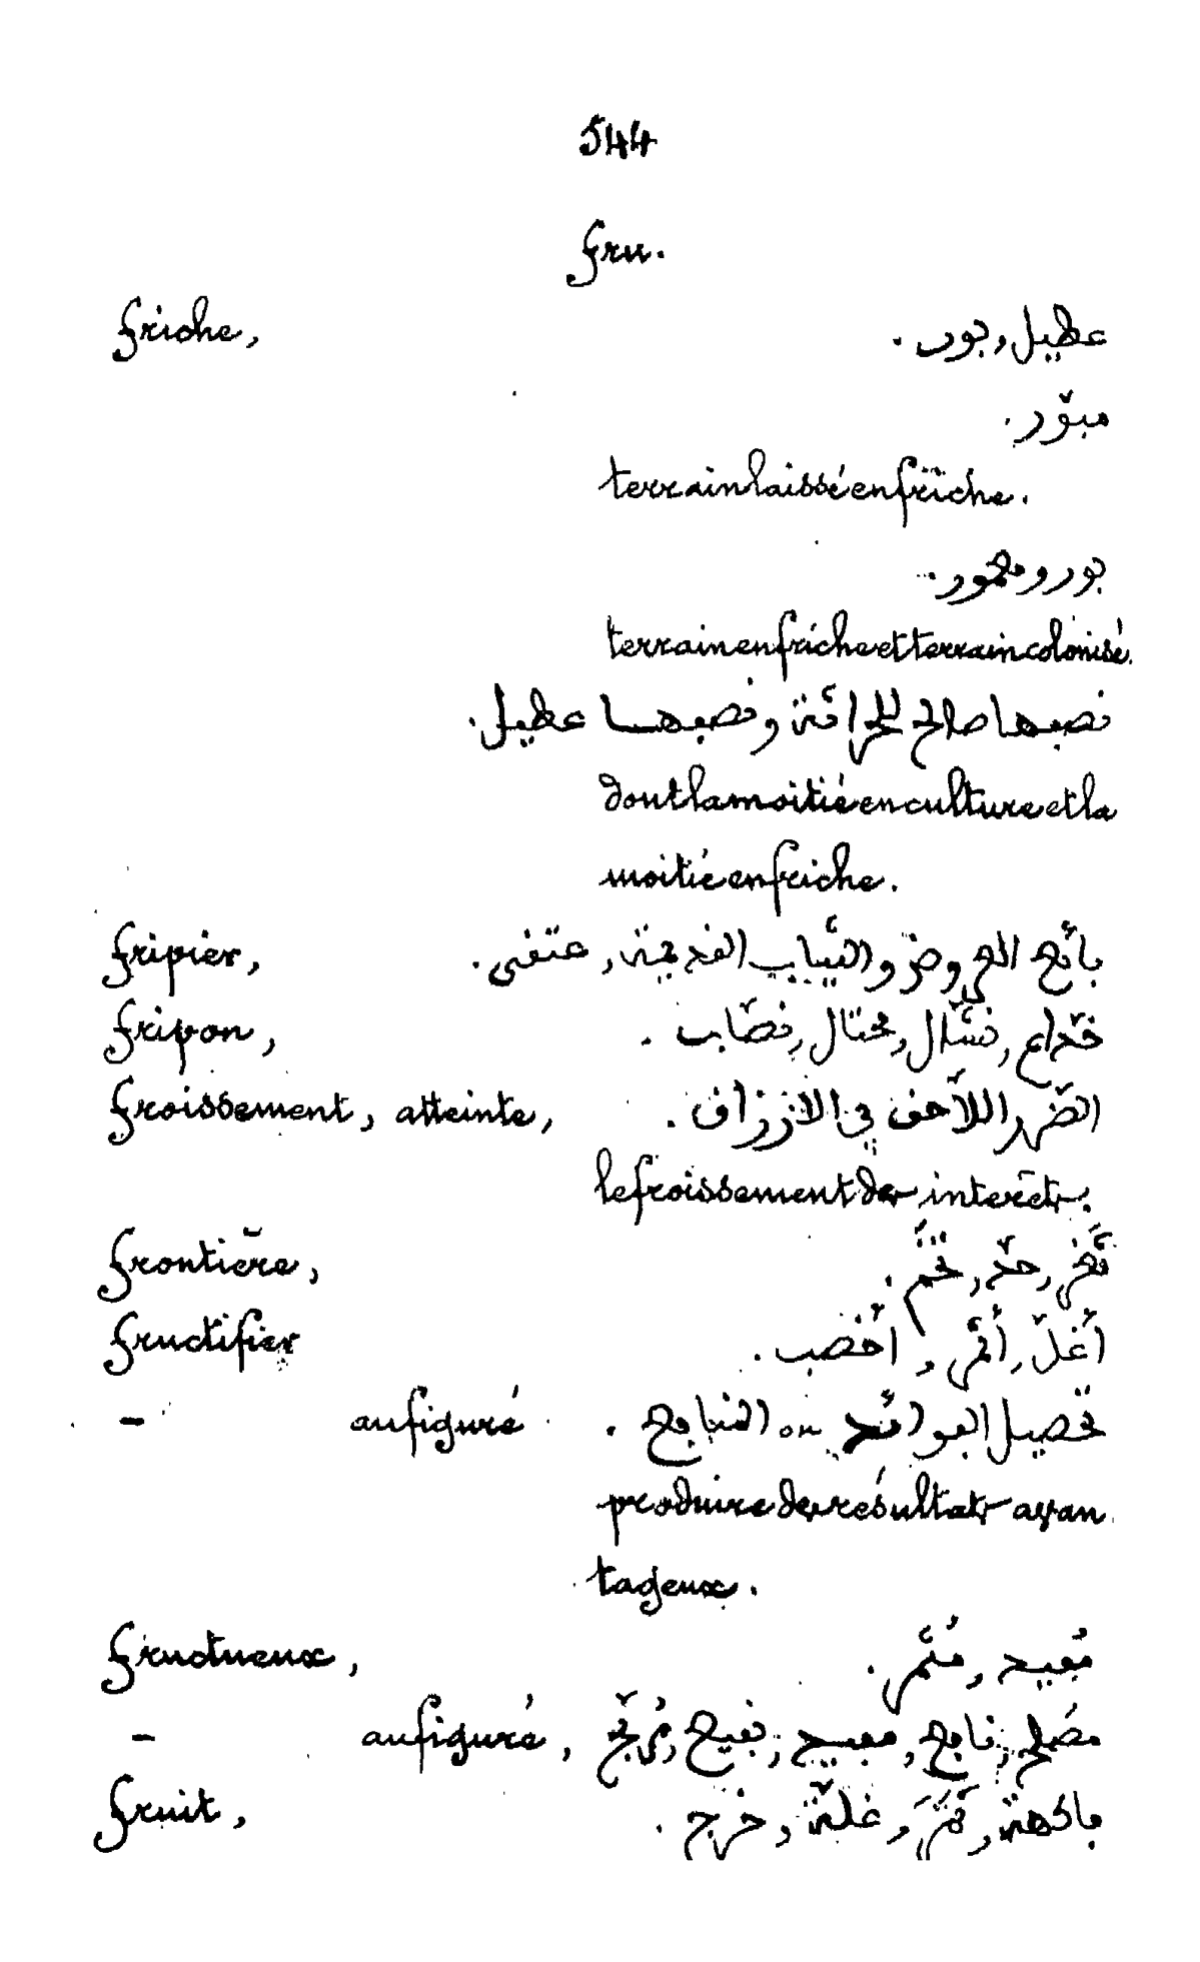 544
fru.
friche, عطيل, بور.
مبوّر.
terrain laissé en friche.
بور ومعمور.
terrain en friche et terrain colonisé.
نصفها صالح للحراثة ونصفها عطيل.
dont la moitié en culture et la
moitié en friche.
fripier, بائع الحروض والثّياب القديمة, عتقي.
fripon, خدّاع, نشّال, محتال, نصّاب.
froissement, atteinte, الضّرر اللاّحق في الارزاق.
le froissement des intérêts.
frontière, ثَغر, حدّ, تخم.
fructifier أغلّ, أثمر, أخصب.
- au figuré تحصيل الفوائد ou المنافع.
produire des résultats avan
tageux.
fructueux, مُفيد, مُثمر.
- au figuré, مصُلح, نافع, مفيد, نفيع, مُربح
fruit, فاكهة, ثَمَر, غلّة, خرج.